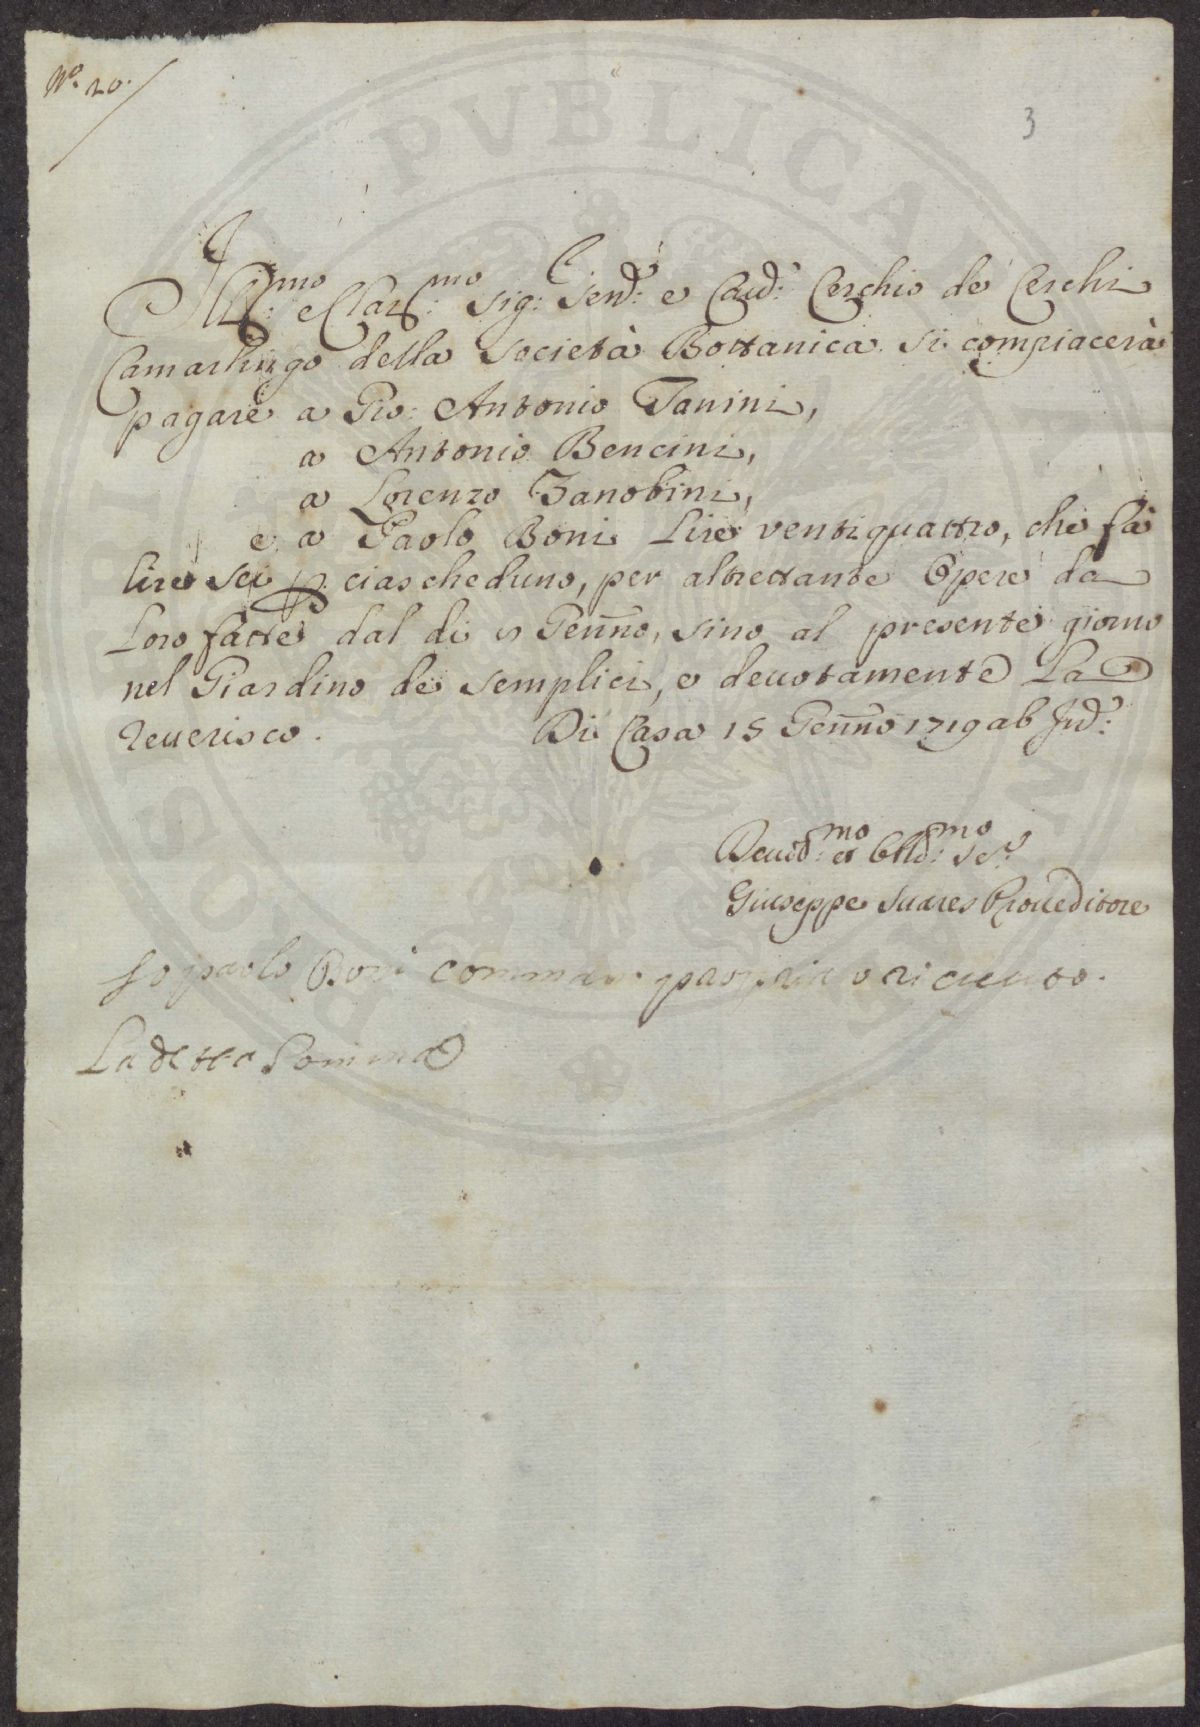 N.o 20.
3
Ill:mo e Clar:mo Sig: Send:e e Cau:d Cerchio de Cerchi
Camarlingo della Società Bottanica si compiacerà
pagare a Gio: Antonio Tanini,
a Antonio Bencini,
a Lorenzo Zanobini,
e a Paolo Boni Lire ventiquattro, che fà
lire sei p ciascheduno, per altrettante Opere da
Loro fatte dal di Genno, sino al presente giorno
nel Giardino de Semplici, e deuotamente La
reuerisco. Di Casa 15 Genno 1719 ab Ind:e
Deuot:mo et Obl:mo Se:e
Giuseppe Suares Proueditore
Io paolo Boni co man propria o riceuto
La detta Somma
PVBLICA